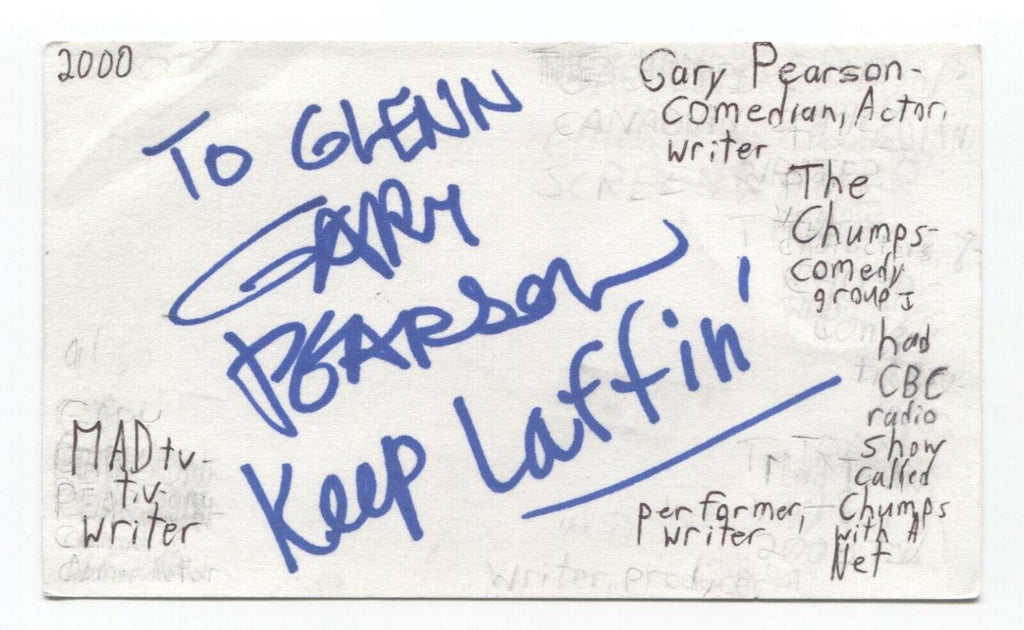 2000
TO GLENN
GARY
PEARSON
Keep Laffin'
Gary Pearson-
Comedian, Actor,
writer
The
Chumps-
comedy
group,
had
CBC
radio
show
called
Chumps
with A
Net
performer,
writer
MAD tv-
t.v.
writer
writer, producer